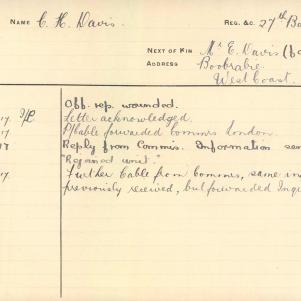 NAME C. H. Davis. REG. &C. 27th Ba
NEXT OF KIN Mr E. Davis (b
ADDRESS Boobrabie.
West Coast.
Off. rep. wounded.
17. Letter acknowledged.
17 Cable forwarded Commrs London.
17 Reply from Commis. Information sen
"Rejoined unit."
17 Further Cable from Commrs, same in
previously received, but forwarded Inqu